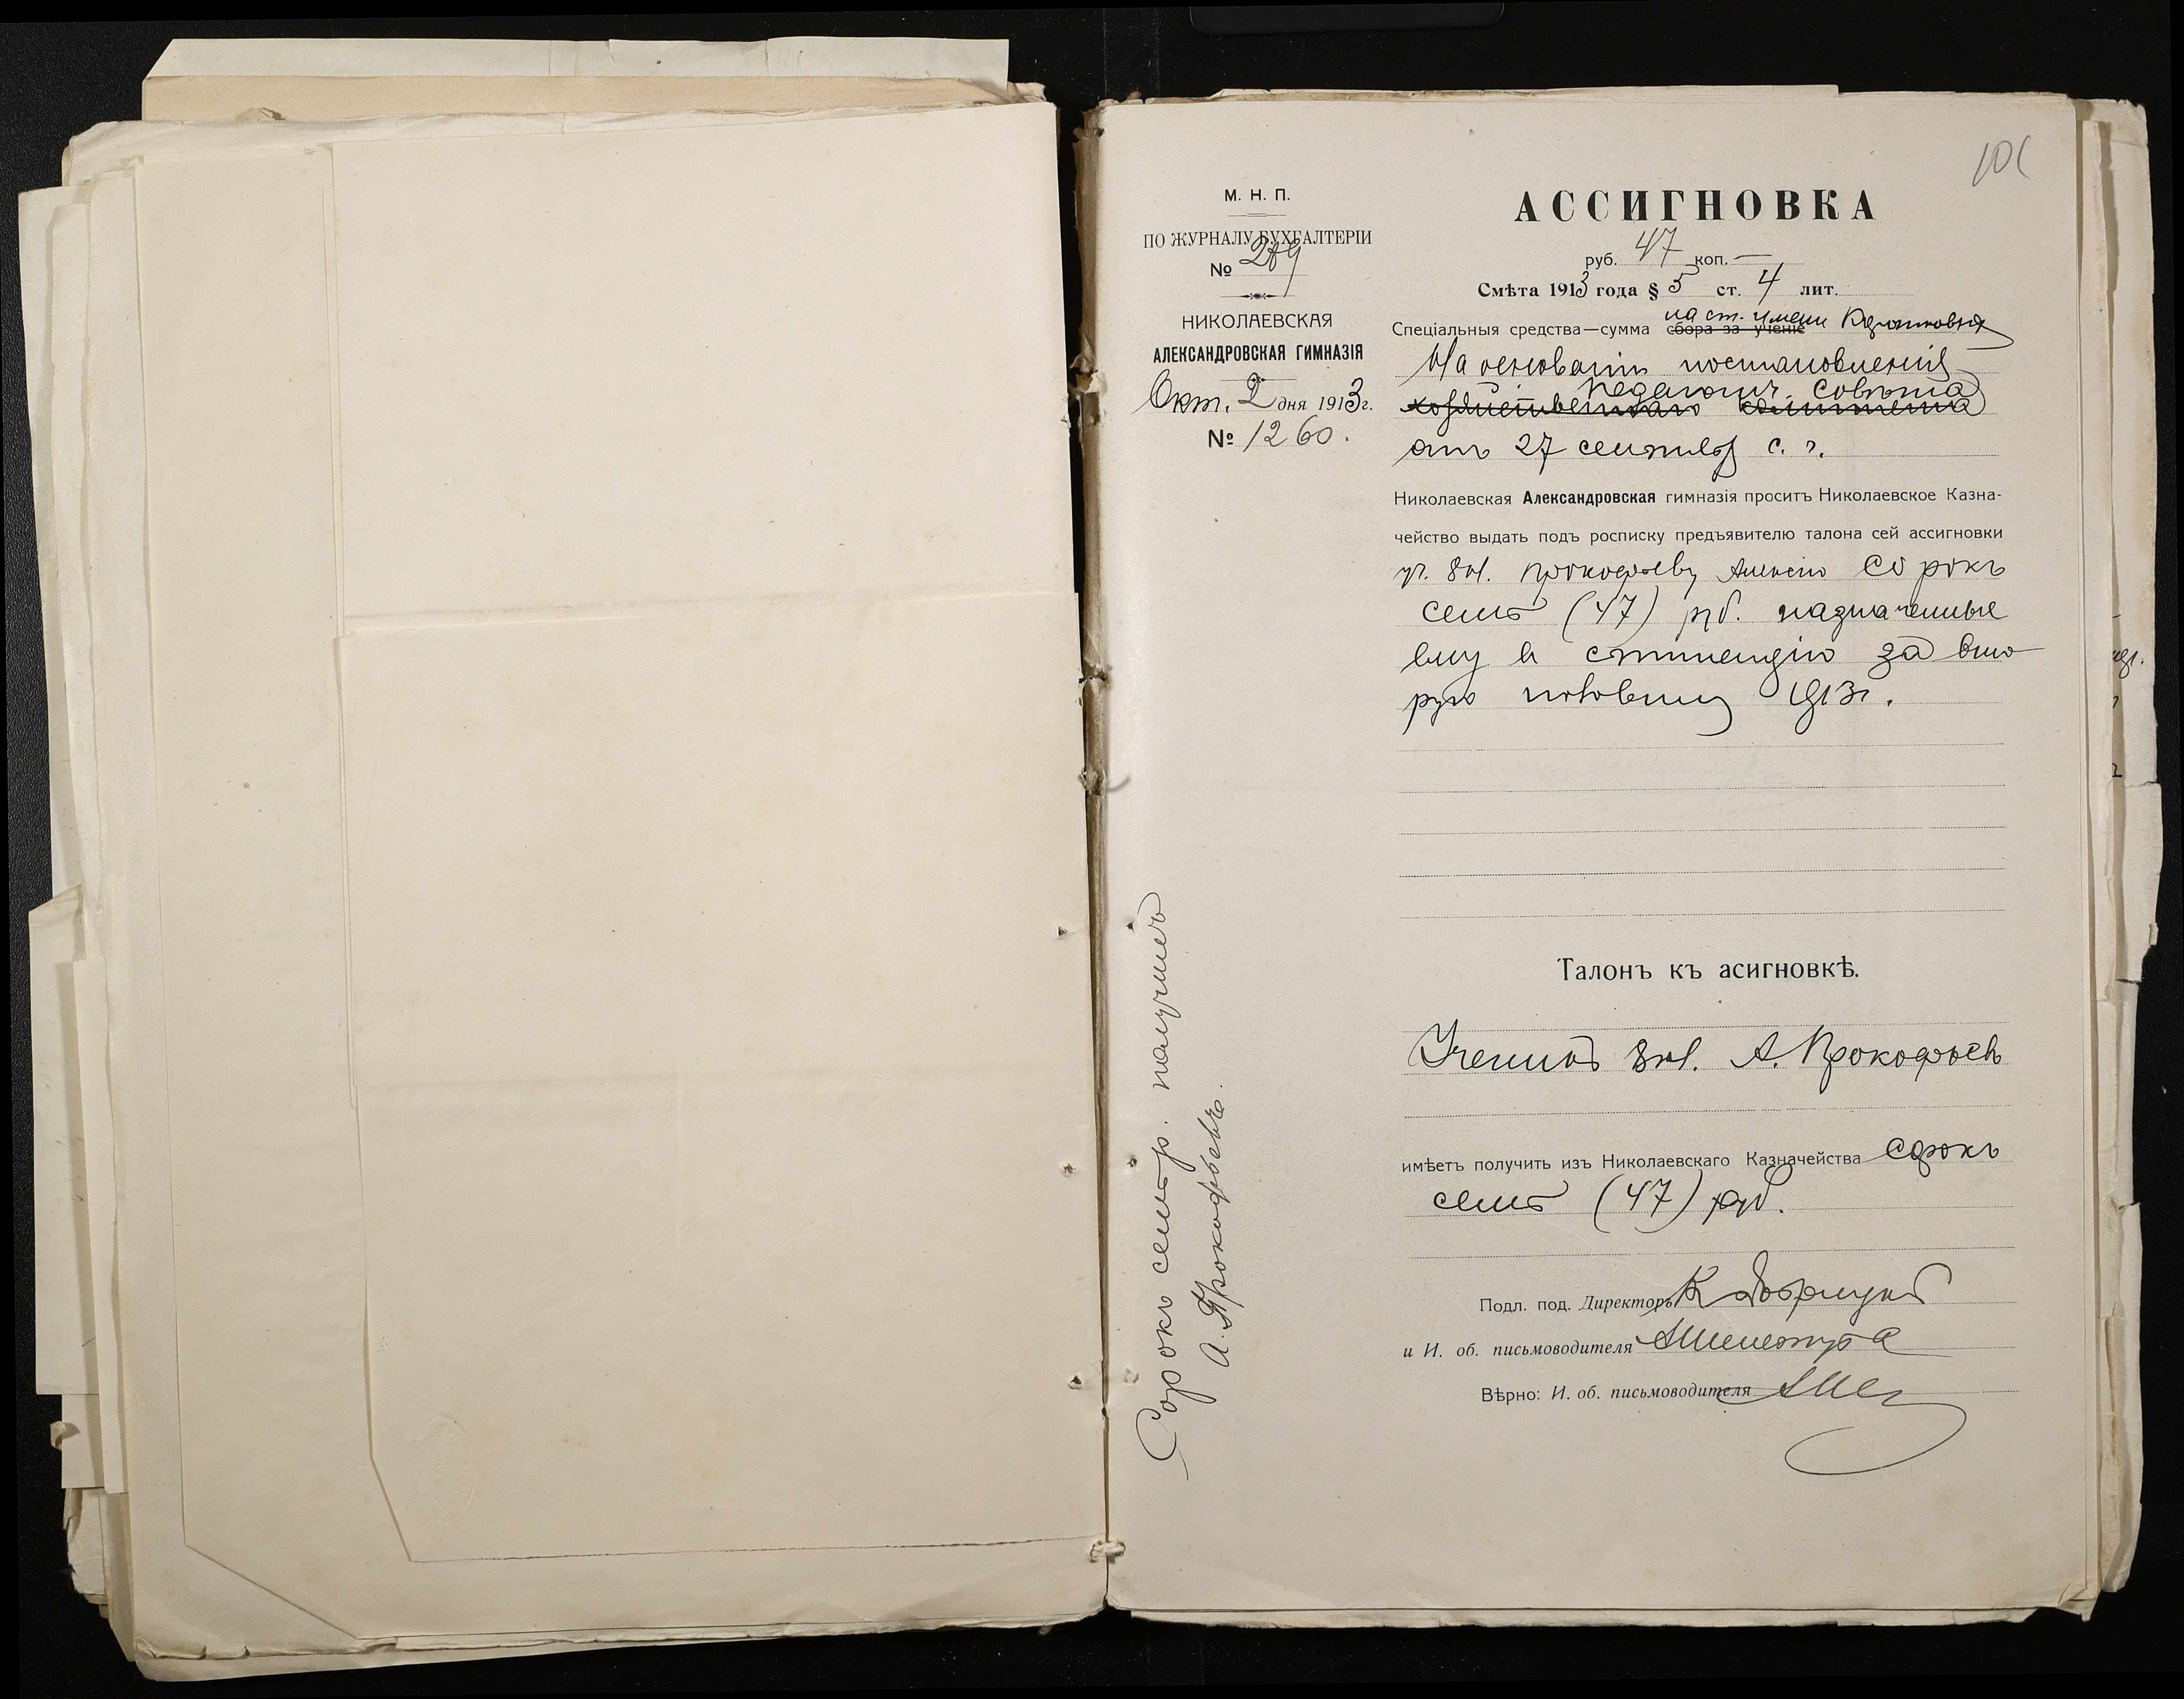 101
М. Н. П.
ПО ЖУРНАЛУ БУХГАЛТЕРІИ
№ 289
НИКОЛАЕВСКАЯ
АЛЕКСАНДРОВСКАЯ ГИМНАЗІЯ
Окт. 2 дня 1913 г.
№ 1260.
АССИГНОВКА
руб. 47 коп. —
Смѣта 1913 года § 5 ст. 4 лит.
на ст. имени
Спеціальныя средства—сумма сбора за ученіе
На основаніи постановленія
педагогич. совѣта
хозяйственнаго комитета
отъ 27 сентября с. г.
Николаевская Александровская гимназія проситъ Николаевское Казна-
чейство выдать подъ росписку предъявителю талона сей ассигновки
уч. 8 кл. Прокофьеву Алексѣю сорокъ
семь (47) руб. назначенные
ему въ стипендію за вто-
рую половину 1913 г.
Талонъ къ асигновкѣ.
Ученикъ 8 кл. А. Прокофьевъ
имѣетъ получить изъ Николаевскаго Казначейства сорокъ
семь (47) руб.
Подл. под. Директоръ К.
и И. об. письмоводителя
Вѣрно: И. об. письмоводителя
Сорокъ семь р. получилъ
А. Прокофьевъ.